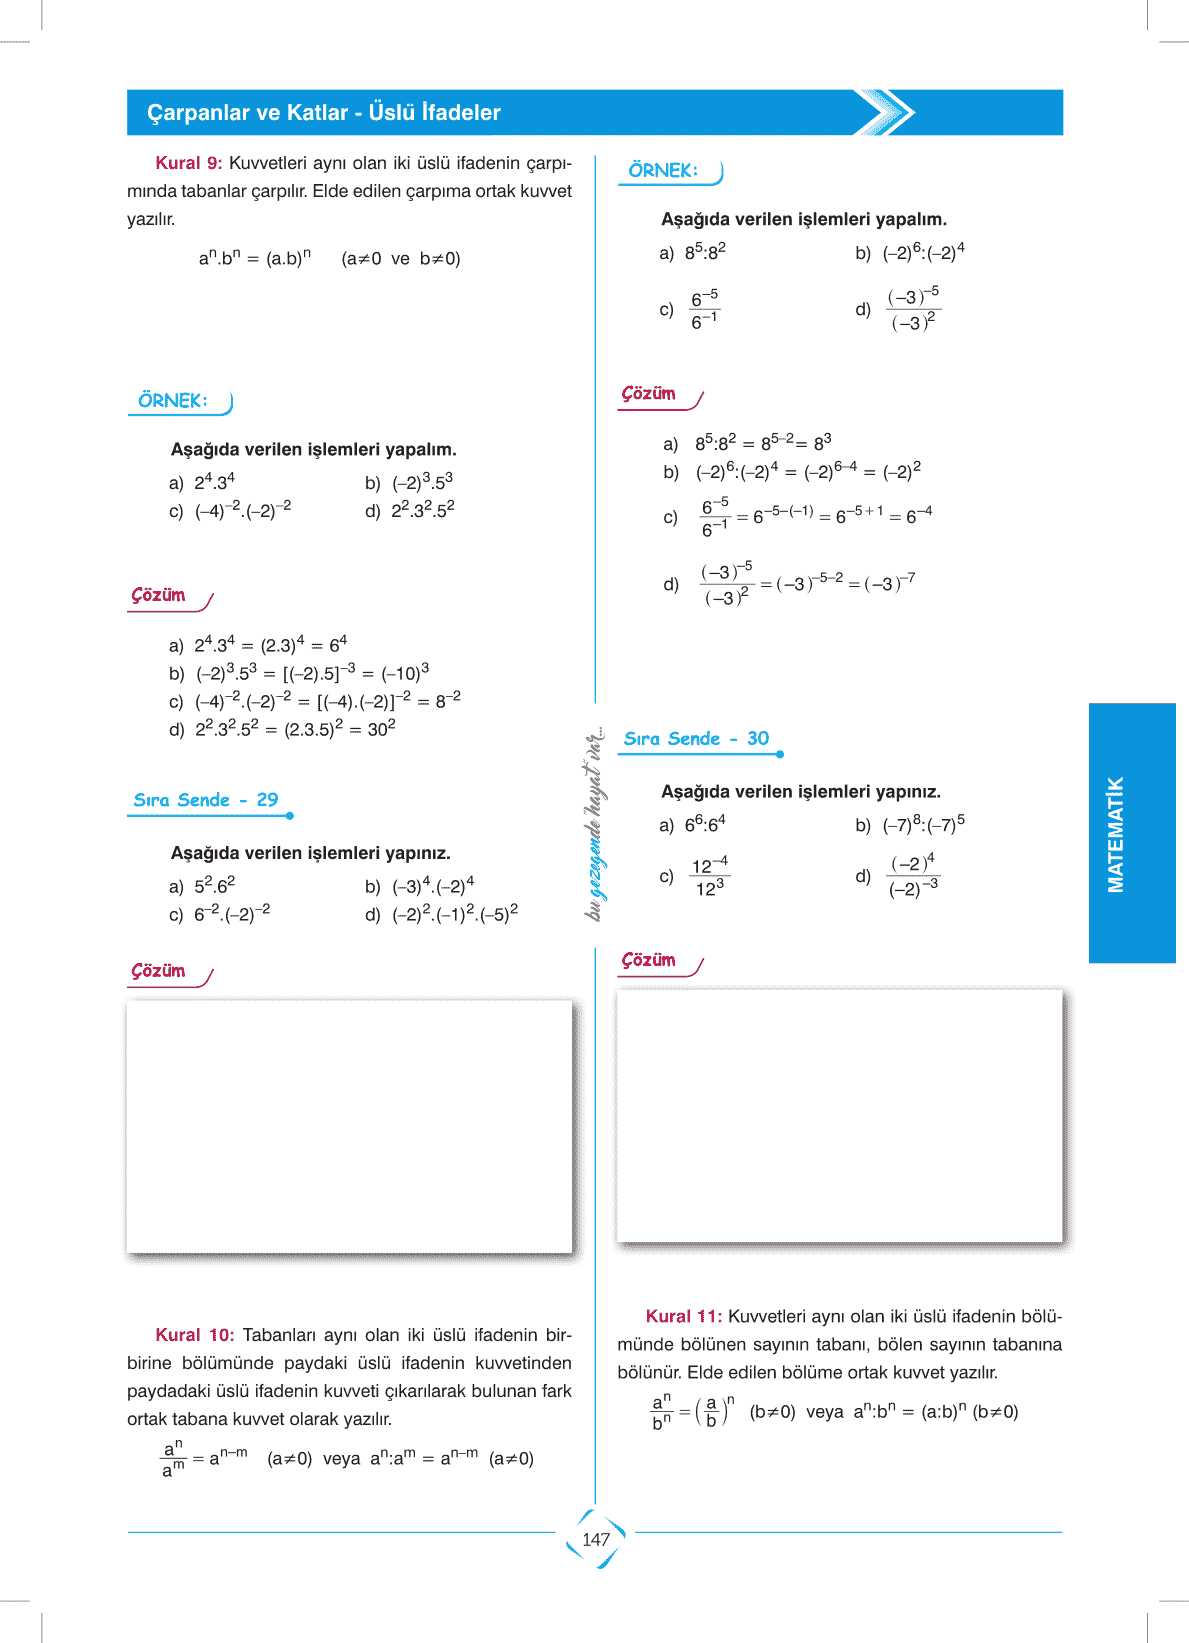 Çarpanlar ve Katlar - Üslü İfadeler
Kural 9: Kuvvetleri aynı olan iki üslü ifadenin çarpı-
mında tabanlar çarpılır. Elde edilen çarpıma ortak kuvvet
yazılır.
aⁿ.bⁿ = (a.b)ⁿ (a≠0 ve b≠0)
ÖRNEK:
Aşağıda verilen işlemleri yapalım.
a) 2⁴.3⁴ b) (–2)³.5³
c) (–4)⁻².(–2)⁻² d) 2².3².5²
Çözüm
a) 2⁴.3⁴ = (2.3)⁴ = 6⁴
b) (–2)³.5³ = [(–2).5]⁻³ = (–10)³
c) (–4)⁻².(–2)⁻² = [(–4).(–2)]⁻² = 8⁻²
d) 2².3².5² = (2.3.5)² = 30²
Sıra Sende - 29
Aşağıda verilen işlemleri yapınız.
a) 5².6² b) (–3)⁴.(–2)⁴
c) 6⁻².(–2)⁻² d) (–2)².(–1)².(–5)²
Çözüm
Kural 10: Tabanları aynı olan iki üslü ifadenin bir-
birine bölümünde paydaki üslü ifadenin kuvvetinden
paydadaki üslü ifadenin kuvveti çıkarılarak bulunan fark
ortak tabana kuvvet olarak yazılır.
aⁿ/aᵐ = aⁿ⁻ᵐ (a≠0) veya aⁿ:aᵐ = aⁿ⁻ᵐ (a≠0)
bu gezegende "hayat" var...
ÖRNEK:
Aşağıda verilen işlemleri yapalım.
a) 8⁵:8² b) (–2)⁶:(–2)⁴
c) 6⁻⁵/6⁻¹ d) (–3)⁻⁵/(–3)²
Çözüm
a) 8⁵:8² = 8⁵⁻² = 8³
b) (–2)⁶:(–2)⁴ = (–2)⁶⁻⁴ = (–2)²
c) 6⁻⁵/6⁻¹ = 6⁻⁵⁻⁽⁻¹⁾ = 6⁻⁵⁺¹ = 6⁻⁴
d) (–3)⁻⁵/(–3)² = (–3)⁻⁵⁻² = (–3)⁻⁷
Sıra Sende - 30
Aşağıda verilen işlemleri yapınız.
a) 6⁶:6⁴ b) (–7)⁸:(–7)⁵
c) 12⁻⁴/12³ d) (–2)⁴/(–2)⁻³
Çözüm
Kural 11: Kuvvetleri aynı olan iki üslü ifadenin bölü-
münde bölünen sayının tabanı, bölen sayının tabanına
bölünür. Elde edilen bölüme ortak kuvvet yazılır.
aⁿ/bⁿ = (a/b)ⁿ (b≠0) veya aⁿ:bⁿ = (a:b)ⁿ (b≠0)
MATEMATİK
147